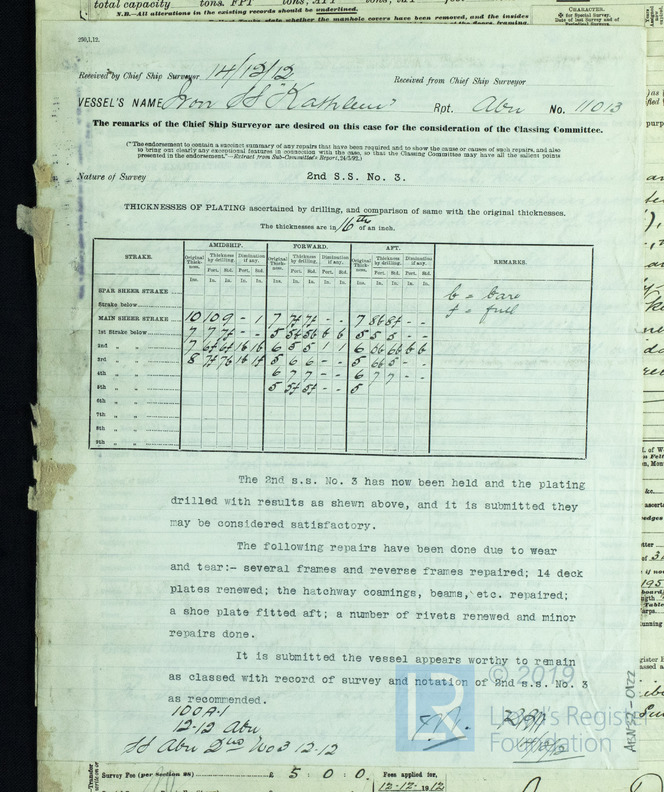 total capacity tons. FPT tons, APT tons,
N.B.—All alterations in the existing records should be underlined.
CHARACTER.
✠ for Special Survey.
Date of last Survey and of
Periodical Survey.
250,1,12.
Received by Chief Ship Surveyor 14/12/12
Received from Chief Ship Surveyor
VESSEL'S NAME Iron SS "Kathleen" Rpt. Abn No. 11013
The remarks of the Chief Ship Surveyor are desired on this case for the consideration of the Classing Committee.
("The endorsement to contain a succinct summary of any repairs that have been required and to show the cause or causes of such repairs, and also
to bring out clearly any exceptional features in connection with the case, so that the Classing Committee may have all the salient points
presented in the endorsement."—Extract from Sub-Committee's Report, 24/5/92.)
Nature of Survey 2nd S.S. No. 3.
THICKNESSES OF PLATING ascertained by drilling, and comparison of same with the original thicknesses.
The thicknesses are in 16ths of an inch.
STRAKE. AMIDSHIP. FORWARD. AFT. REMARKS.
Original Thickness. Thickness by drilling. Diminution if any. Original Thickness. Thickness by drilling. Diminution if any. Original Thickness. Thickness by drilling. Diminution if any.
Port. Std. Port. Std. Port. Std. Port. Std. Port. Std. Port. Std.
Ins. In. In. In. In. Ins. In. In. In. In. Ins. In. In. In. In.
SPAR SHEER STRAKE
b = bare
Strake below
f = full
MAIN SHEER STRAKE 10 10 9 - 1 7 7f 7f - - 7 8b 8f - -
1st Strake below 7 7 7f - - 5 5b 5b b b 5 5 5 - -
2nd " " 7 6f 6f 1b 1b 6 5 5 1 1 6 6b 6b b b
3rd " " 8 7f 7b 1b 1f 5 6 6 - - 5 6b 5 - -
4th " " 6 7 7 - - 6 7 7 - -
5th " " 5 5f 5f - - 5
6th " "
7th " "
8th " "
9th " "
The 2nd s.s. No. 3 has now been held and the plating
drilled with results as shewn above, and it is submitted they
may be considered satisfactory.
The following repairs have been done due to wear
and tear:- several frames and reverse frames repaired; 14 deck
plates renewed; the hatchway coamings, beams, etc. repaired;
a shoe plate fitted aft; a number of rivets renewed and minor
repairs done.
It is submitted the vessel appears worthy to remain
as classed with record of survey and notation of 2nd s.s. No. 3
as recommended.
100A-1
12-12 Abn
SS Abn 2nd No 3 12-12
© 2019
Lloyd's Register
Foundation
ABN 32-0122
Survey Fee (per Section 28) £ 5 : 0 : 0. Fees applied for,
12-12-1912